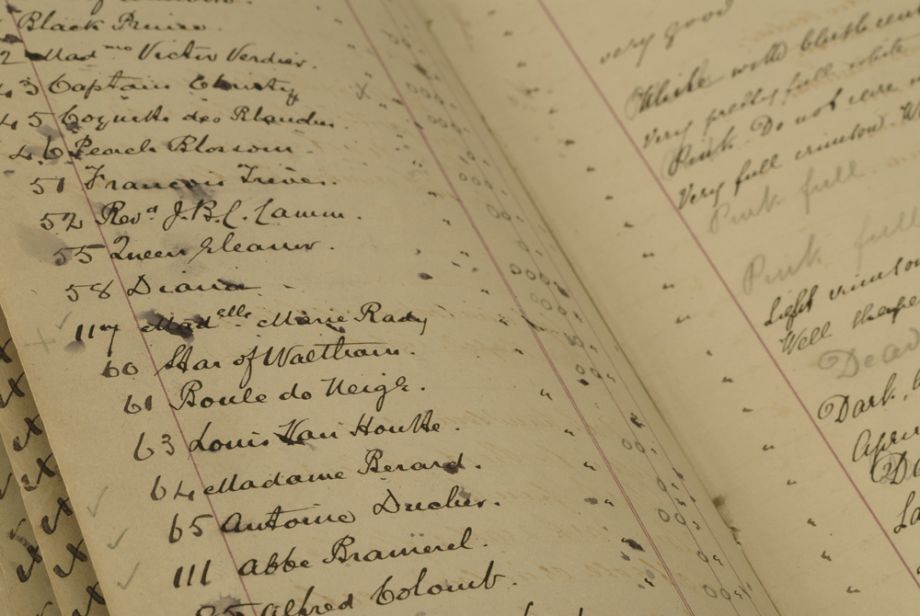 Black Prince.
2 Mad me Victor Verdier.
43 Captain Christy
45 Coquette des Blanches.
46 Peach Blossom
51 François Treves.
52 Revd J.B.C. Camm.
55 Queen Eleanor.
58 Diana
117 Madelle Marie Rady
60 Star of Waltham.
61 Boule de Neige.
63 Louis Van Houtte.
64 Madame Berard.
65 Antoine Ducher.
111 Abbe Bramerel.
85 Alfred Colomb.
very good
White with blush cen
Very pretty full white
Pink. Do not care
Very full crimson. W
Pink full.
Pink full
Light crimson
Well shape
Dead
Dark,
April
D
La